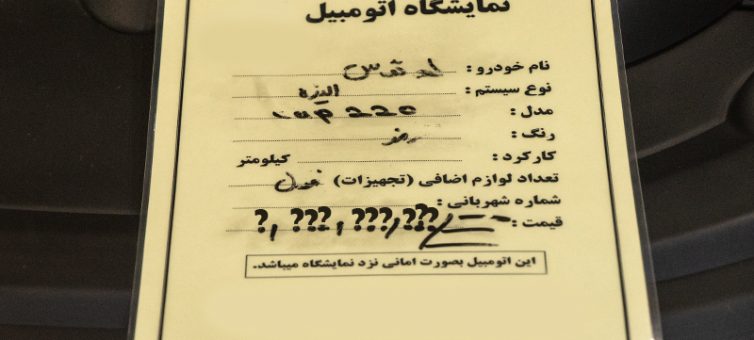 نمایشگاه اتومبیل
نام خودرو :
نوع سیستم :
مدل : 220
رنگ :
کارکرد : کیلومتر
تعداد لوازم اضافی (تجهیزات)
شماره شهربانی :
قیمت : ?, ???, ???, ???
این اتومبیل بصورت امانی نزد نمایشگاه میباشد.